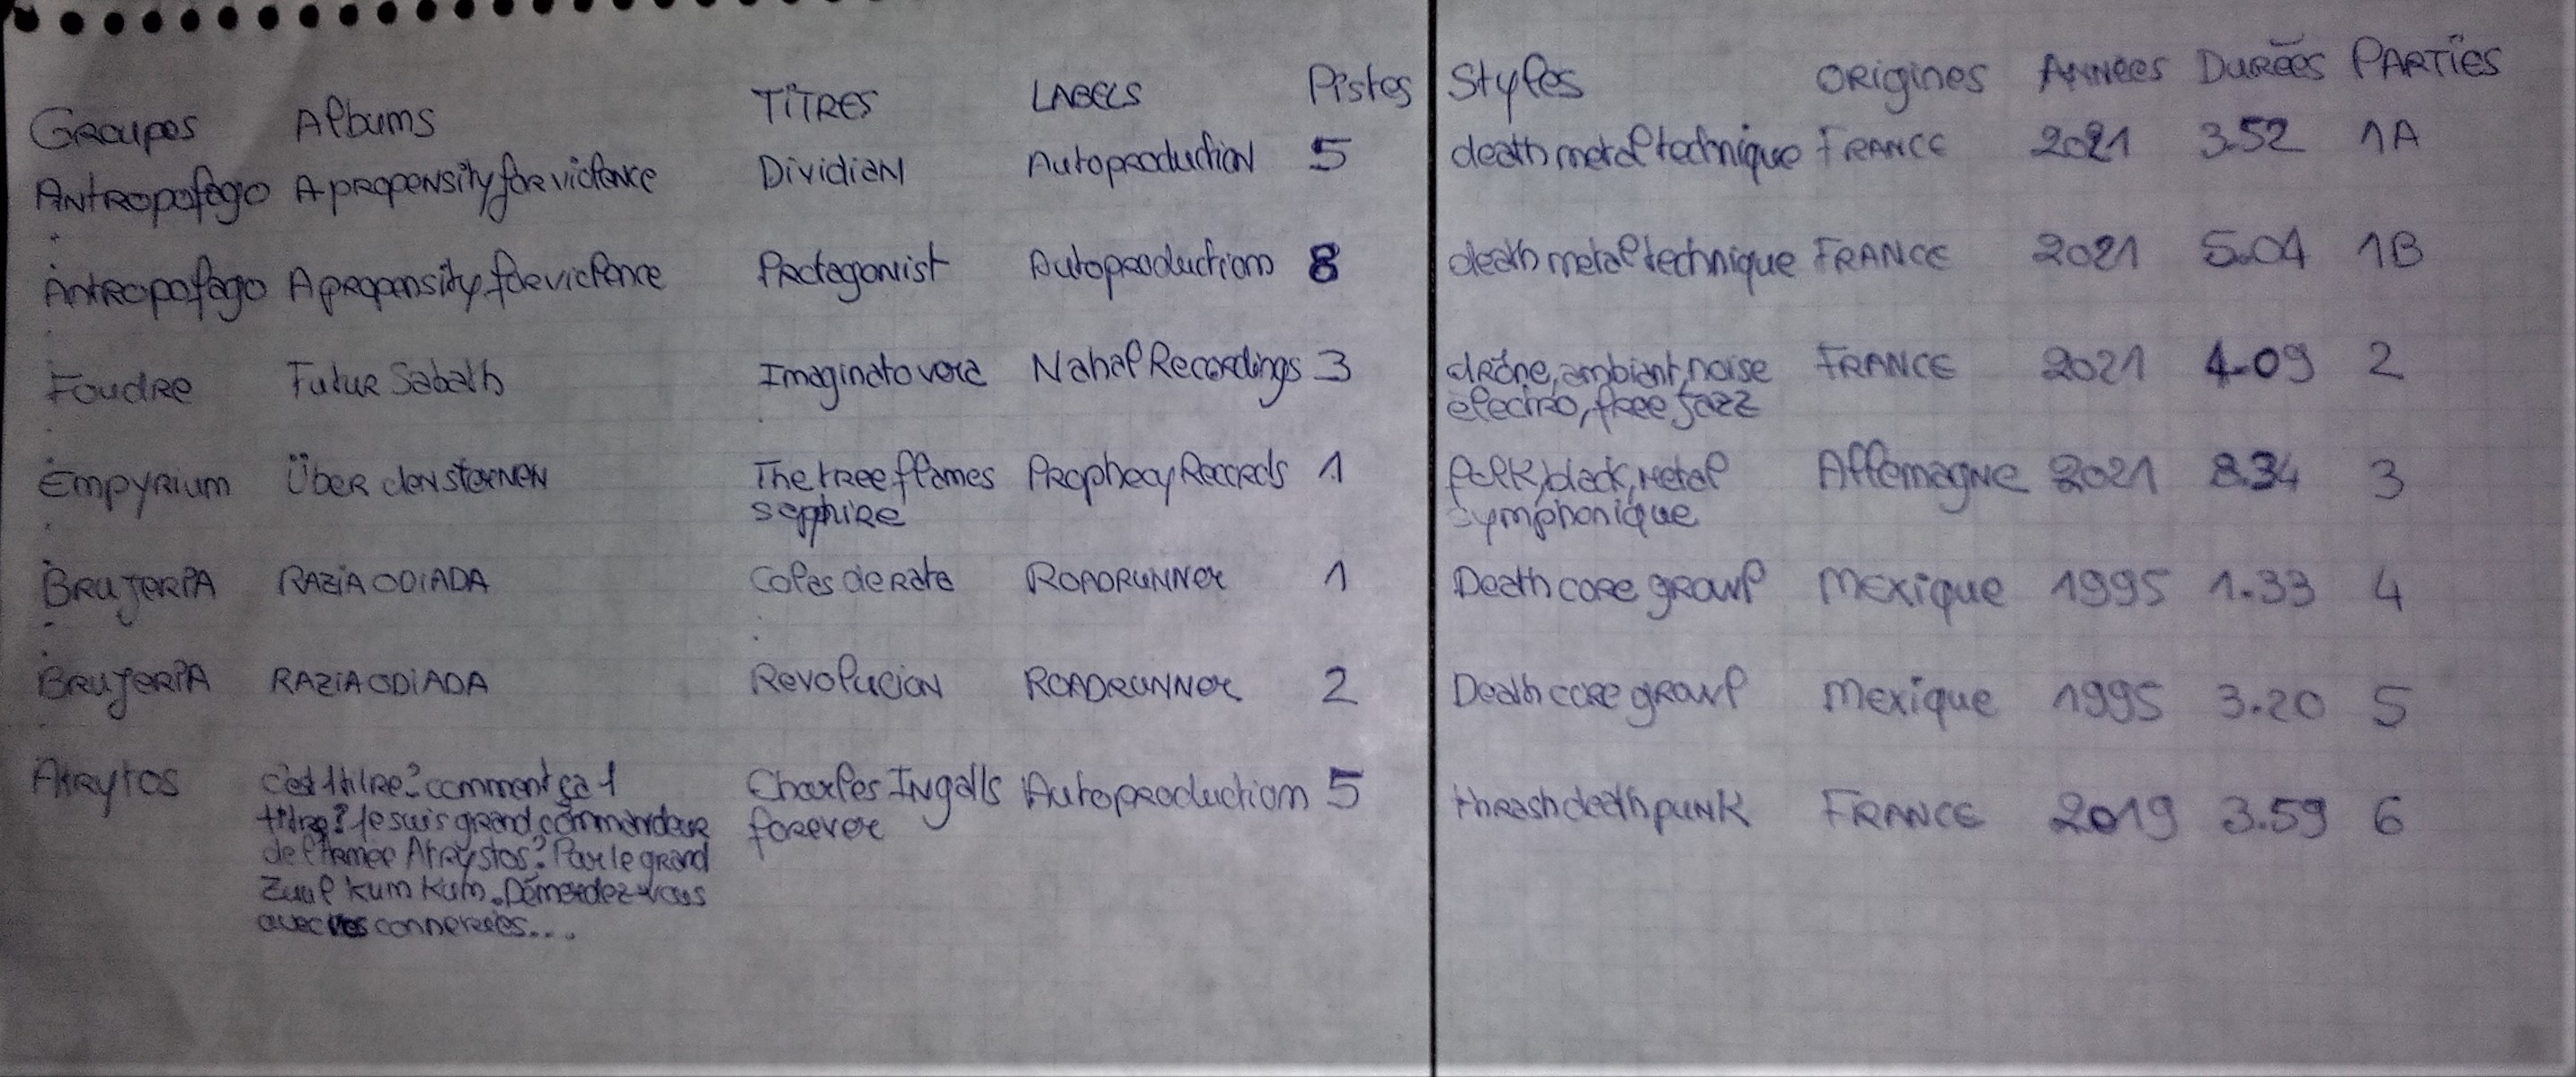 Groupes Albums TITRES LABELS Pistes Styles ORigines ANNées DURÉES PARTIES
Antropofago A propensity for violence Dividian Autoproduction 5 death metal technique FRANCE 2021 3.52 1A
Antropofago A propensity for violence Protagonist Autoproduction 8 death metal technique FRANCE 2021 5.04 1B
Foudre Futur Sabath Imaginato vera Nahal Recordings 3 drône, ambiant, noise FRANCE 2021 4.09 2
electro, free jazz
Empyrium Über den sternen The tree flames Prophecy Records 1 folk, black, metal Allemagne 2021 8.34 3
saphire symphonique
BRUJERIA RAZIA ODIADA Colas de rata ROADRUNNER 1 Death core growl Mexique 1995 1.33 4
BRUJERIA RAZIA ODIADA Revolucion ROADRUNNER 2 Death core growl Mexique 1995 3.20 5
Atrytos c'est 1 titre? comment ça 1 Charles Ingalls Autoproduction 5 thrash death punk FRANCE 2019 3.59 6
titre? Je suis grand commandeur forever
de l'armée Atrystos? Par le grand
Zuul Kum Kum. Démerdez-vous
avec vos conneries...